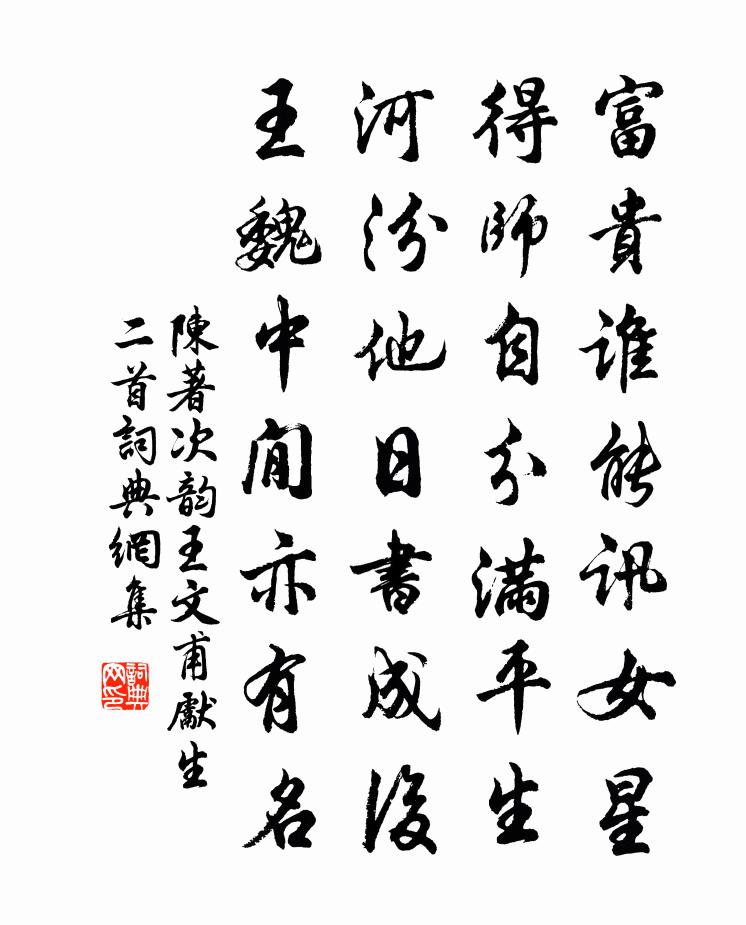 富貴誰能訊女星
得師自分滿平生
河汾他日書成後
王魏中閒亦有名
陳著次韵王文甫獻生
二首詞典網集
詞典网印